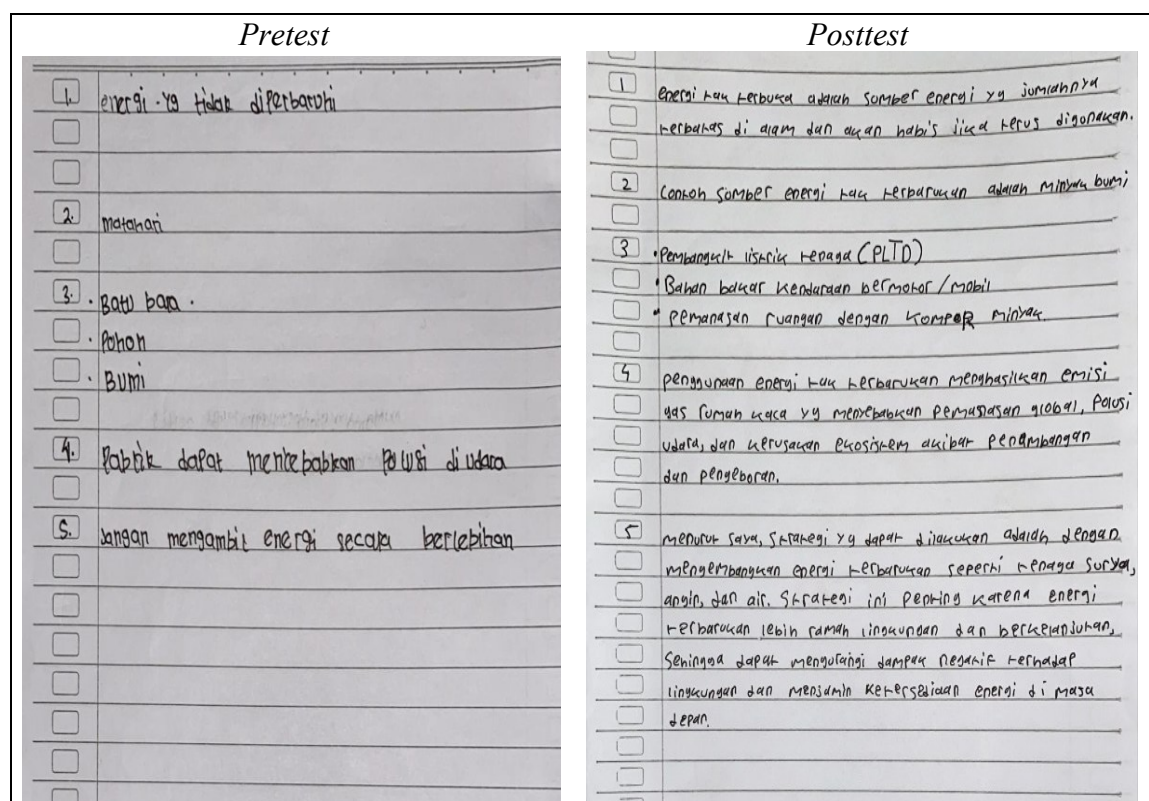 Pretest
1. energi yg tidak diperbaruhi
2. matahari
3. · Batu bara ·
· Pohon
· Bumi
4. Pabrik dapat mentebabkan Polusi di udara
5. Jangan mengambil energi secara berlebihan
Posttest
1 energi tak terbuka adalah sumber energi yg jumlahnya
terbatas di alam dan akan habis jika terus digunakan.
2 Contoh sumber energi tak terbarukan adalah minyak bumi
3 · Pembangkit listrik tenaga (PLTD)
· Bahan bakar kendaraan bermotor / mobil
· Pemanasan ruangan dengan kompor minyak
4 penggunaan energi tak terbarukan menghasilkan emisi
gas rumah kaca yg menyebabkan pemanasan global, polusi
udara, dan kerusakan ekosistem akibat penambangan
dan pengeboran.
5 menurut saya, strategi yg dapat dilakukan adalah dengan
mengembangkan energi terbarukan seperti tenaga surya,
angin, dan air. Strategi ini penting karena energi
terbarukan lebih ramah lingkungan dan berkelanjutan,
Sehingga dapat mengurangi dampak negatif terhadap
lingkungan dan menjamin ketersediaan energi di masa
depan.